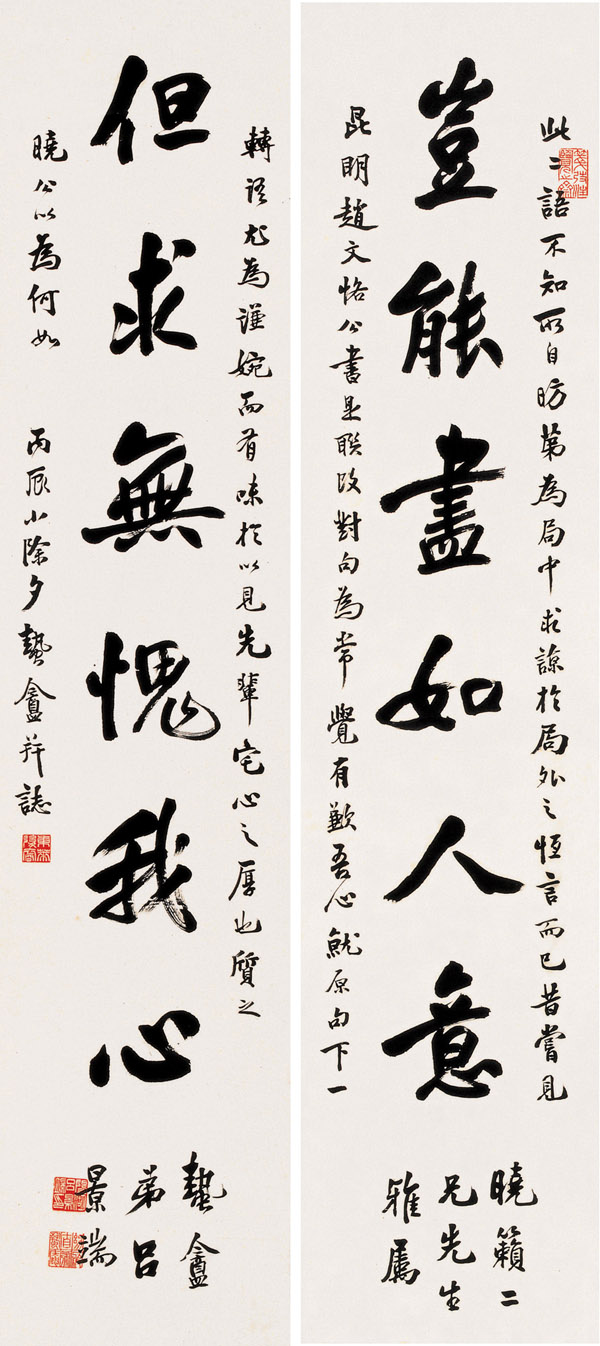 豈能盡如人意
此二語不知所自昉第為局中求諒於局外之恆言而已昔嘗見
昆明趙文恪公書是聯改對句為常覺有歉吾心觕原句下一
曉籟二
兄先生
雅屬
但求無愧我心
轉語尤為謹婉而有味於以見先輩宅心之厚也質之
曉公以為何如
丙辰小除夕蟄盦并誌
蟄盦
弟呂
景端